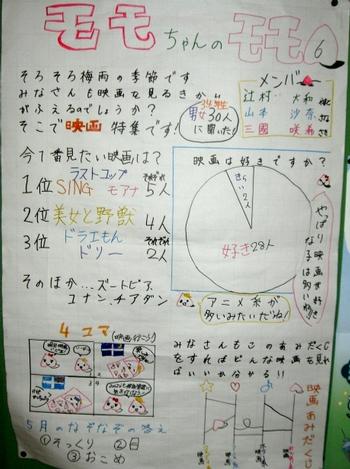 モモちゃんのモモ 6
そろそろ梅雨の季節です
みなさんも映画を見るきかい
がふえるのでしょうか?
そこで映画特集です!
34班
男女30人
に聞いた!
メンバー
辻村 大和
山本 沙奈
三國 咲希
今1番見たい映画は?
ラストコップ
1位 SING モアナ それぞれ5人
2位 美女と野獣 4人
3位 ドラえもん ドリー それぞれ2人
そのほか…ズートピア、
コナン、チアダン
映画は好きですか?
きらい2人
好き28人
やっぱり映画好きな子は多いね!
アニメ系が
多いみたいだね!
4コマ
(映画行こう!)
みなさんもこのあみだくじ
をすればどんな映画を見れ
ばいいか分かる!!
映画あみだくじ
5月のなぞなぞの答え
①そっくり ②目
③おこめ